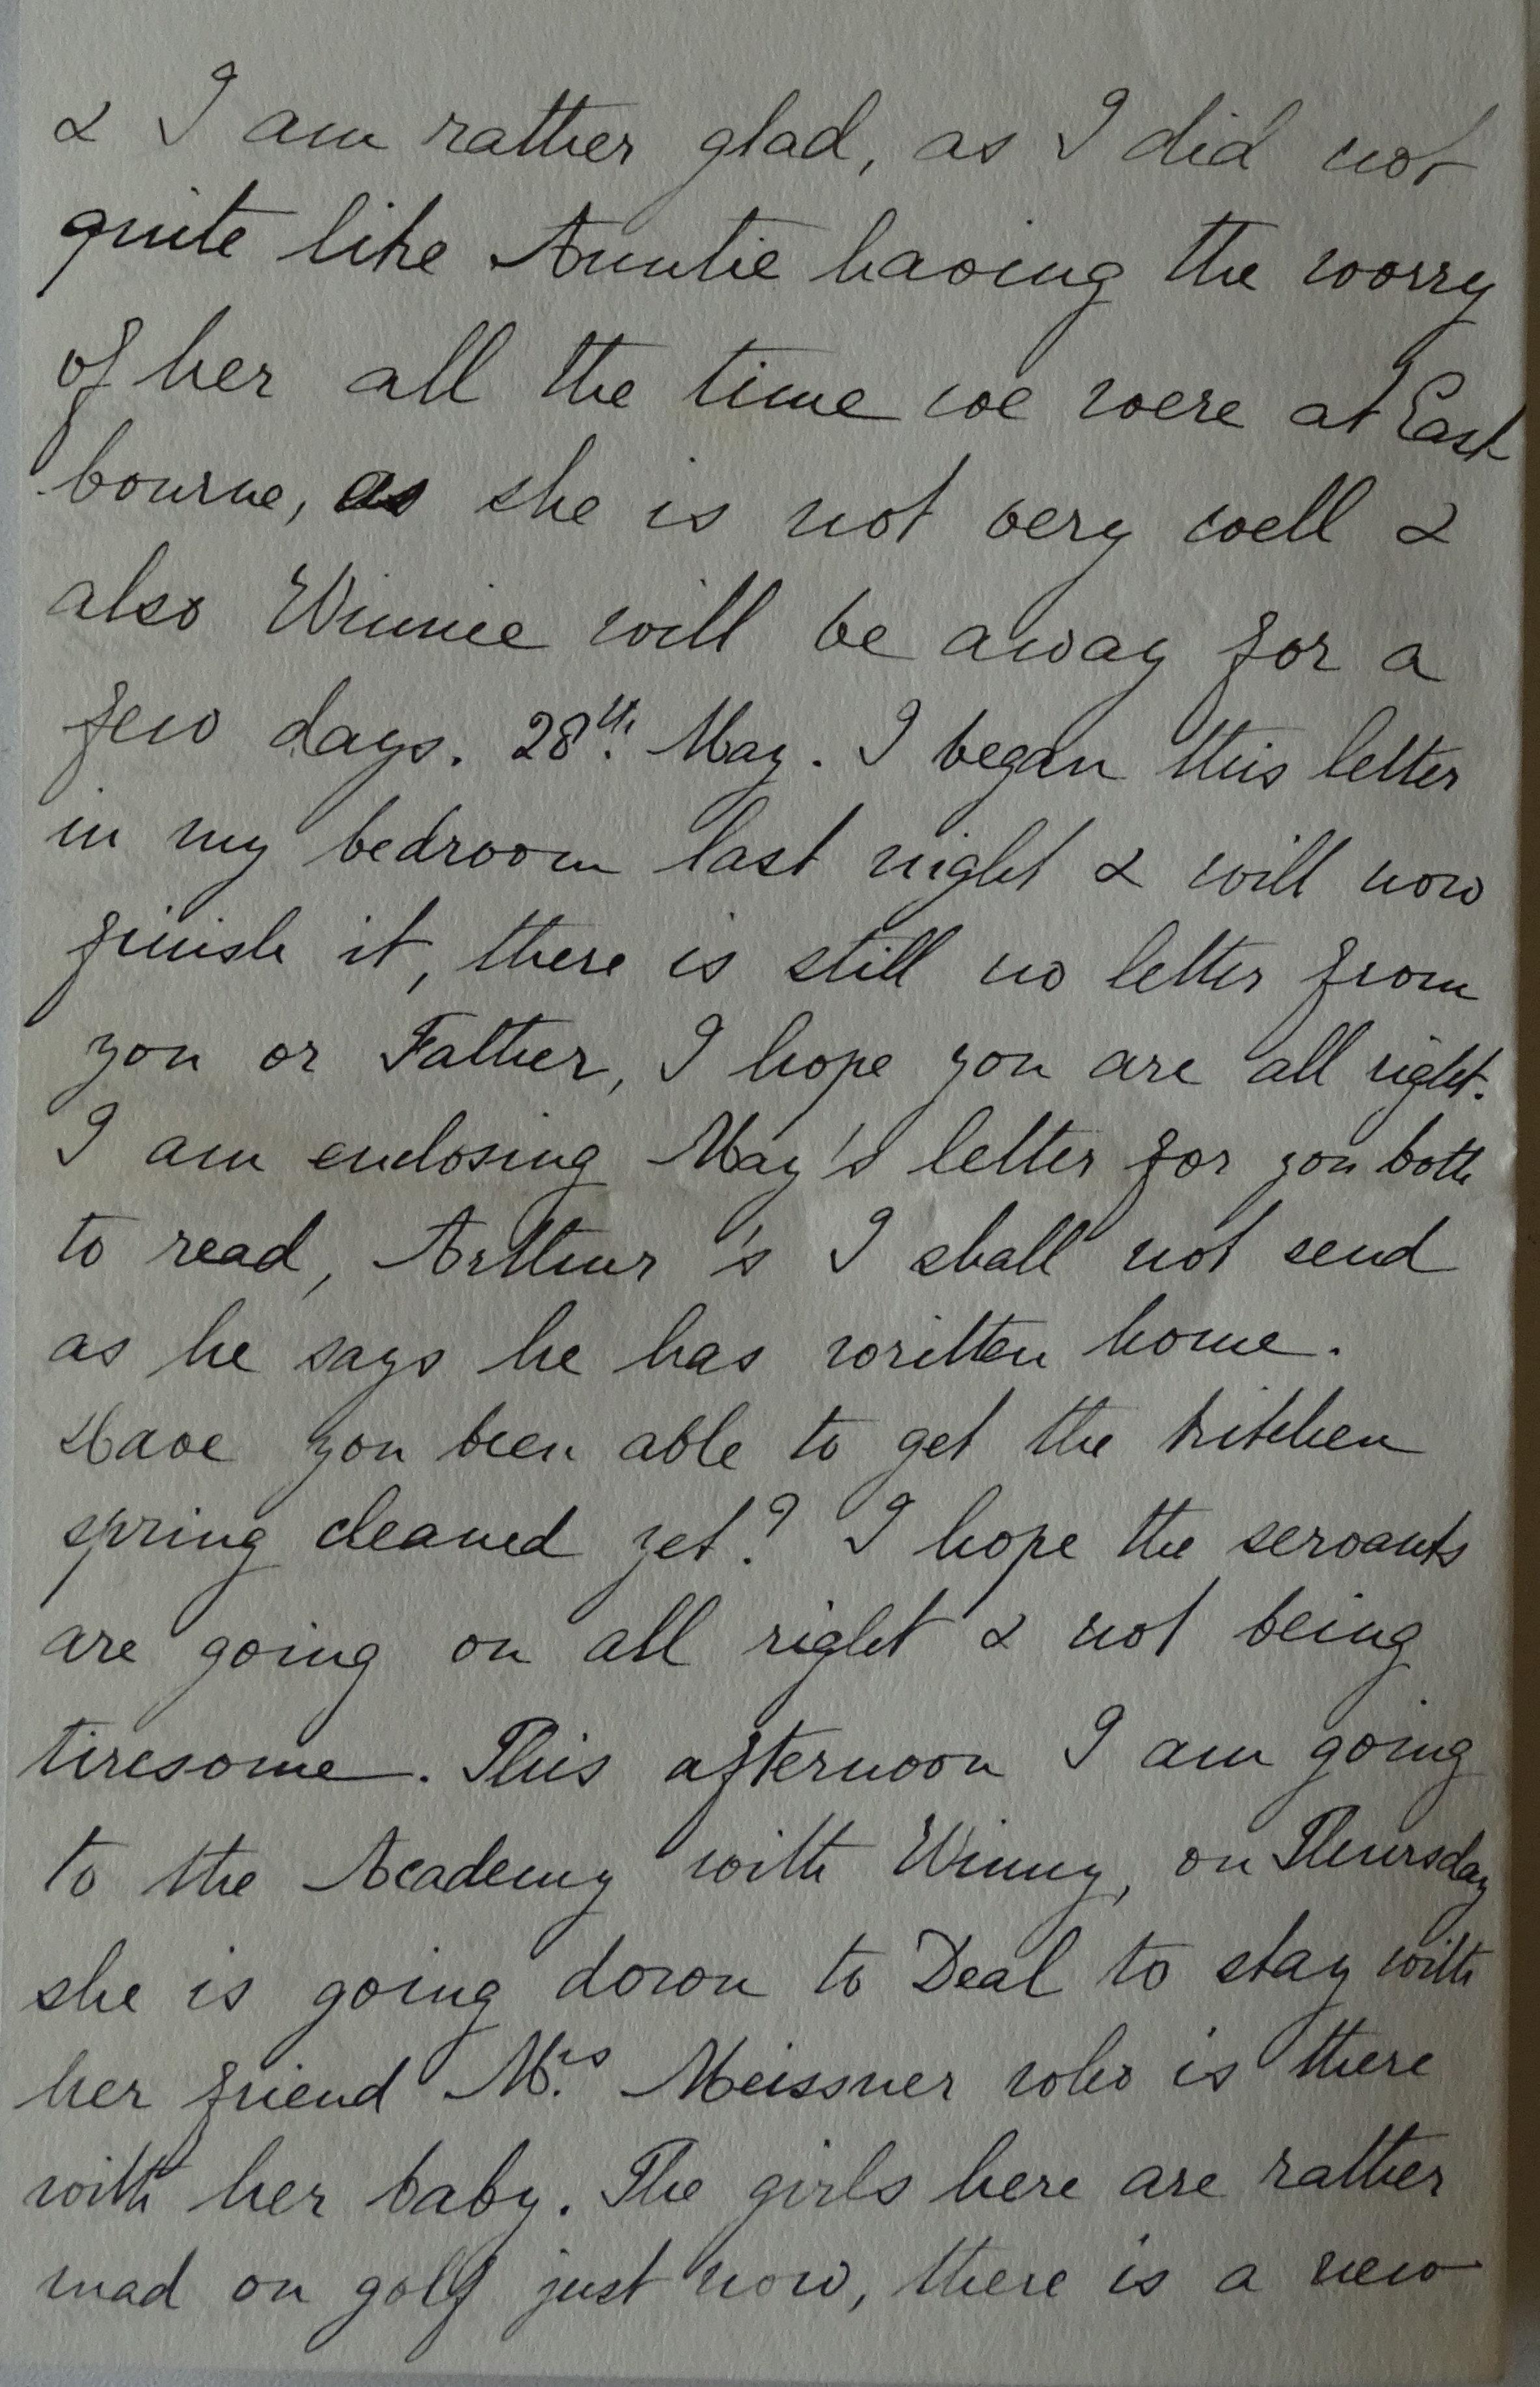 & I am rather glad, as I did not
quite like Auntie having the worry
of her all the time we were at East
bourne, as she is not very well &
also Winnie will be away for a
few days. 28th. May. I began this letter
in my bedroom last night & will now
finish it, there is still no letter from
you or Father, I hope you are all right.
I am enclosing May's letter for you both
to read, Arthur's I shall not send
as he says he has written home.
Have you been able to get the kitchen
spring cleaned yet? I hope the servants
are going on all right & not being
tiresome. This afternoon I am going
to the Academy with Winny, on Thursday
she is going down to Deal to stay with
her friend Mrs. Meissner who is there
with her baby. The girls here are rather
mad on golf just now, there is a new